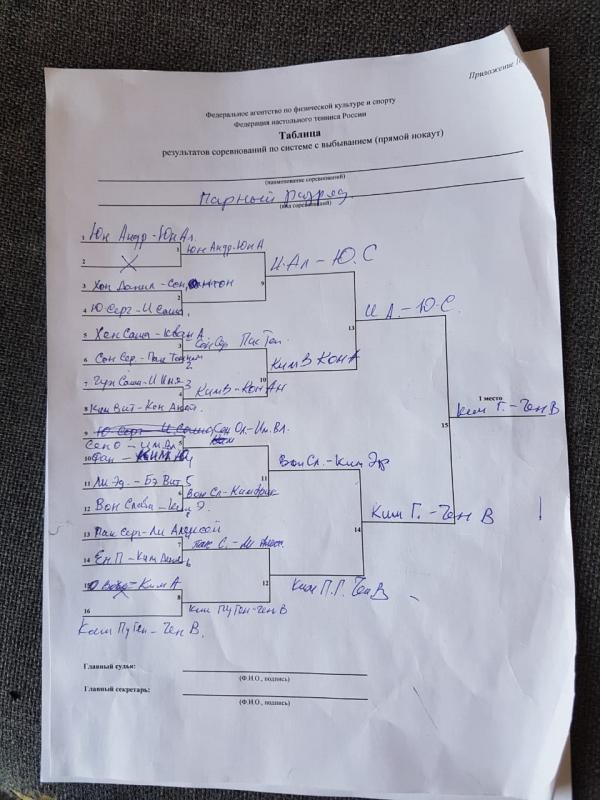 Приложение
Федеральное агентство по физической культуре и спорту
Федерация настольного тенниса России
Таблица
результатов соревнований по системе с выбыванием (прямой нокаут)
(наименование соревнований)
Парный разряд
(вид соревнований)
1 Юн Андр-Юн Ал
2
1 Юн Андр-Юн А
3 Хон Данил-Сон Антон
2
9 И.Ал-Ю.С
4 Ю Серг-И Саша
5 Хен Саша-Кван А
3 Сон Сер Пак Тен
6 Сон Сер.-Пак
13 И А.-Ю.С.
7 Саша-И
4 Ким В-Кон Ан
10 Ким В Кон А
8 Ким Вит-Кон
9 Ю Серг-И Саша
Сен О-Им.Вл
5 Сен Ол-Им.Вл.
10 Фан-Ким
11 Ли Эд.-Бэ Вит
6 Вон Сл-Ким
11 Вон Сл.-Ким Эр
12 Вон Слава-Ким Э.
15 Ким Г.-Чен В
1 место
13 Пак Серг-Ли Алексей
7 Пак С.-Ли
14 Ен П-Ким
14 Ким Г.-Чен В !
15 Ким А
8 Ким Пу Ген-Чен В
12 Ким П.Г. Чен В
16
Ким Пу Ген-Чен В.
Главный судья:
(Ф.И.О., подпись)
Главный секретарь:
(Ф.И.О., подпись)